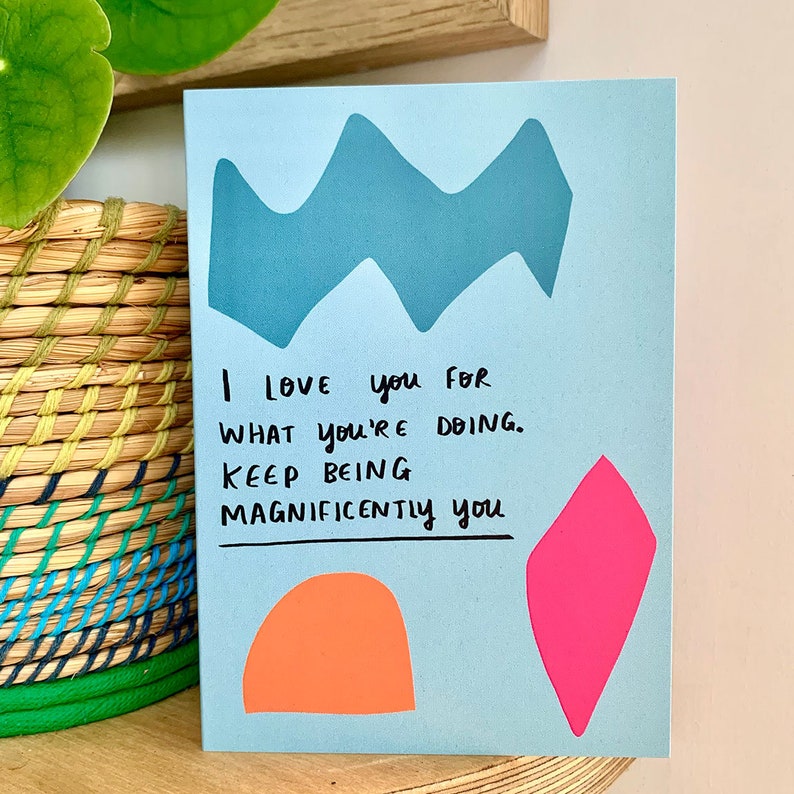 I LOVE you FOR
WHAT you'RE DOING.
KEEP BEING
MAGNIFICENTLY you